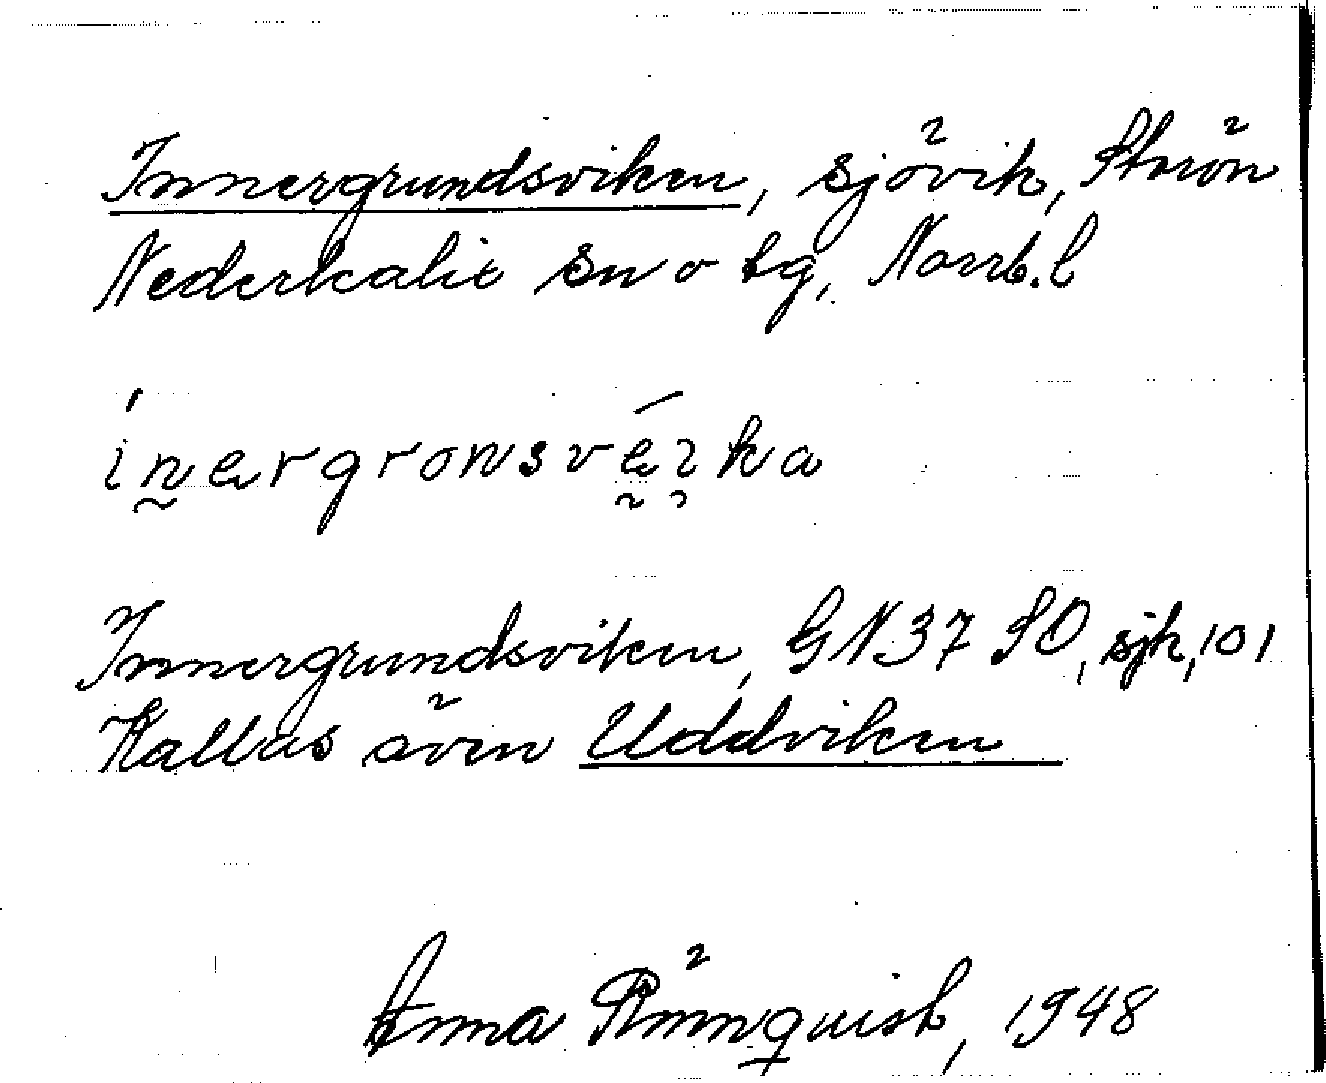 Innergrundsviken, sjövik, Storön
Nederkalix sn o tg, Norrb. l
ínergronsvéıka
Innergrundsviken, GN37 SO, sjk, 101
Kallas även Uddviken
Anna Rönnquist, 1948